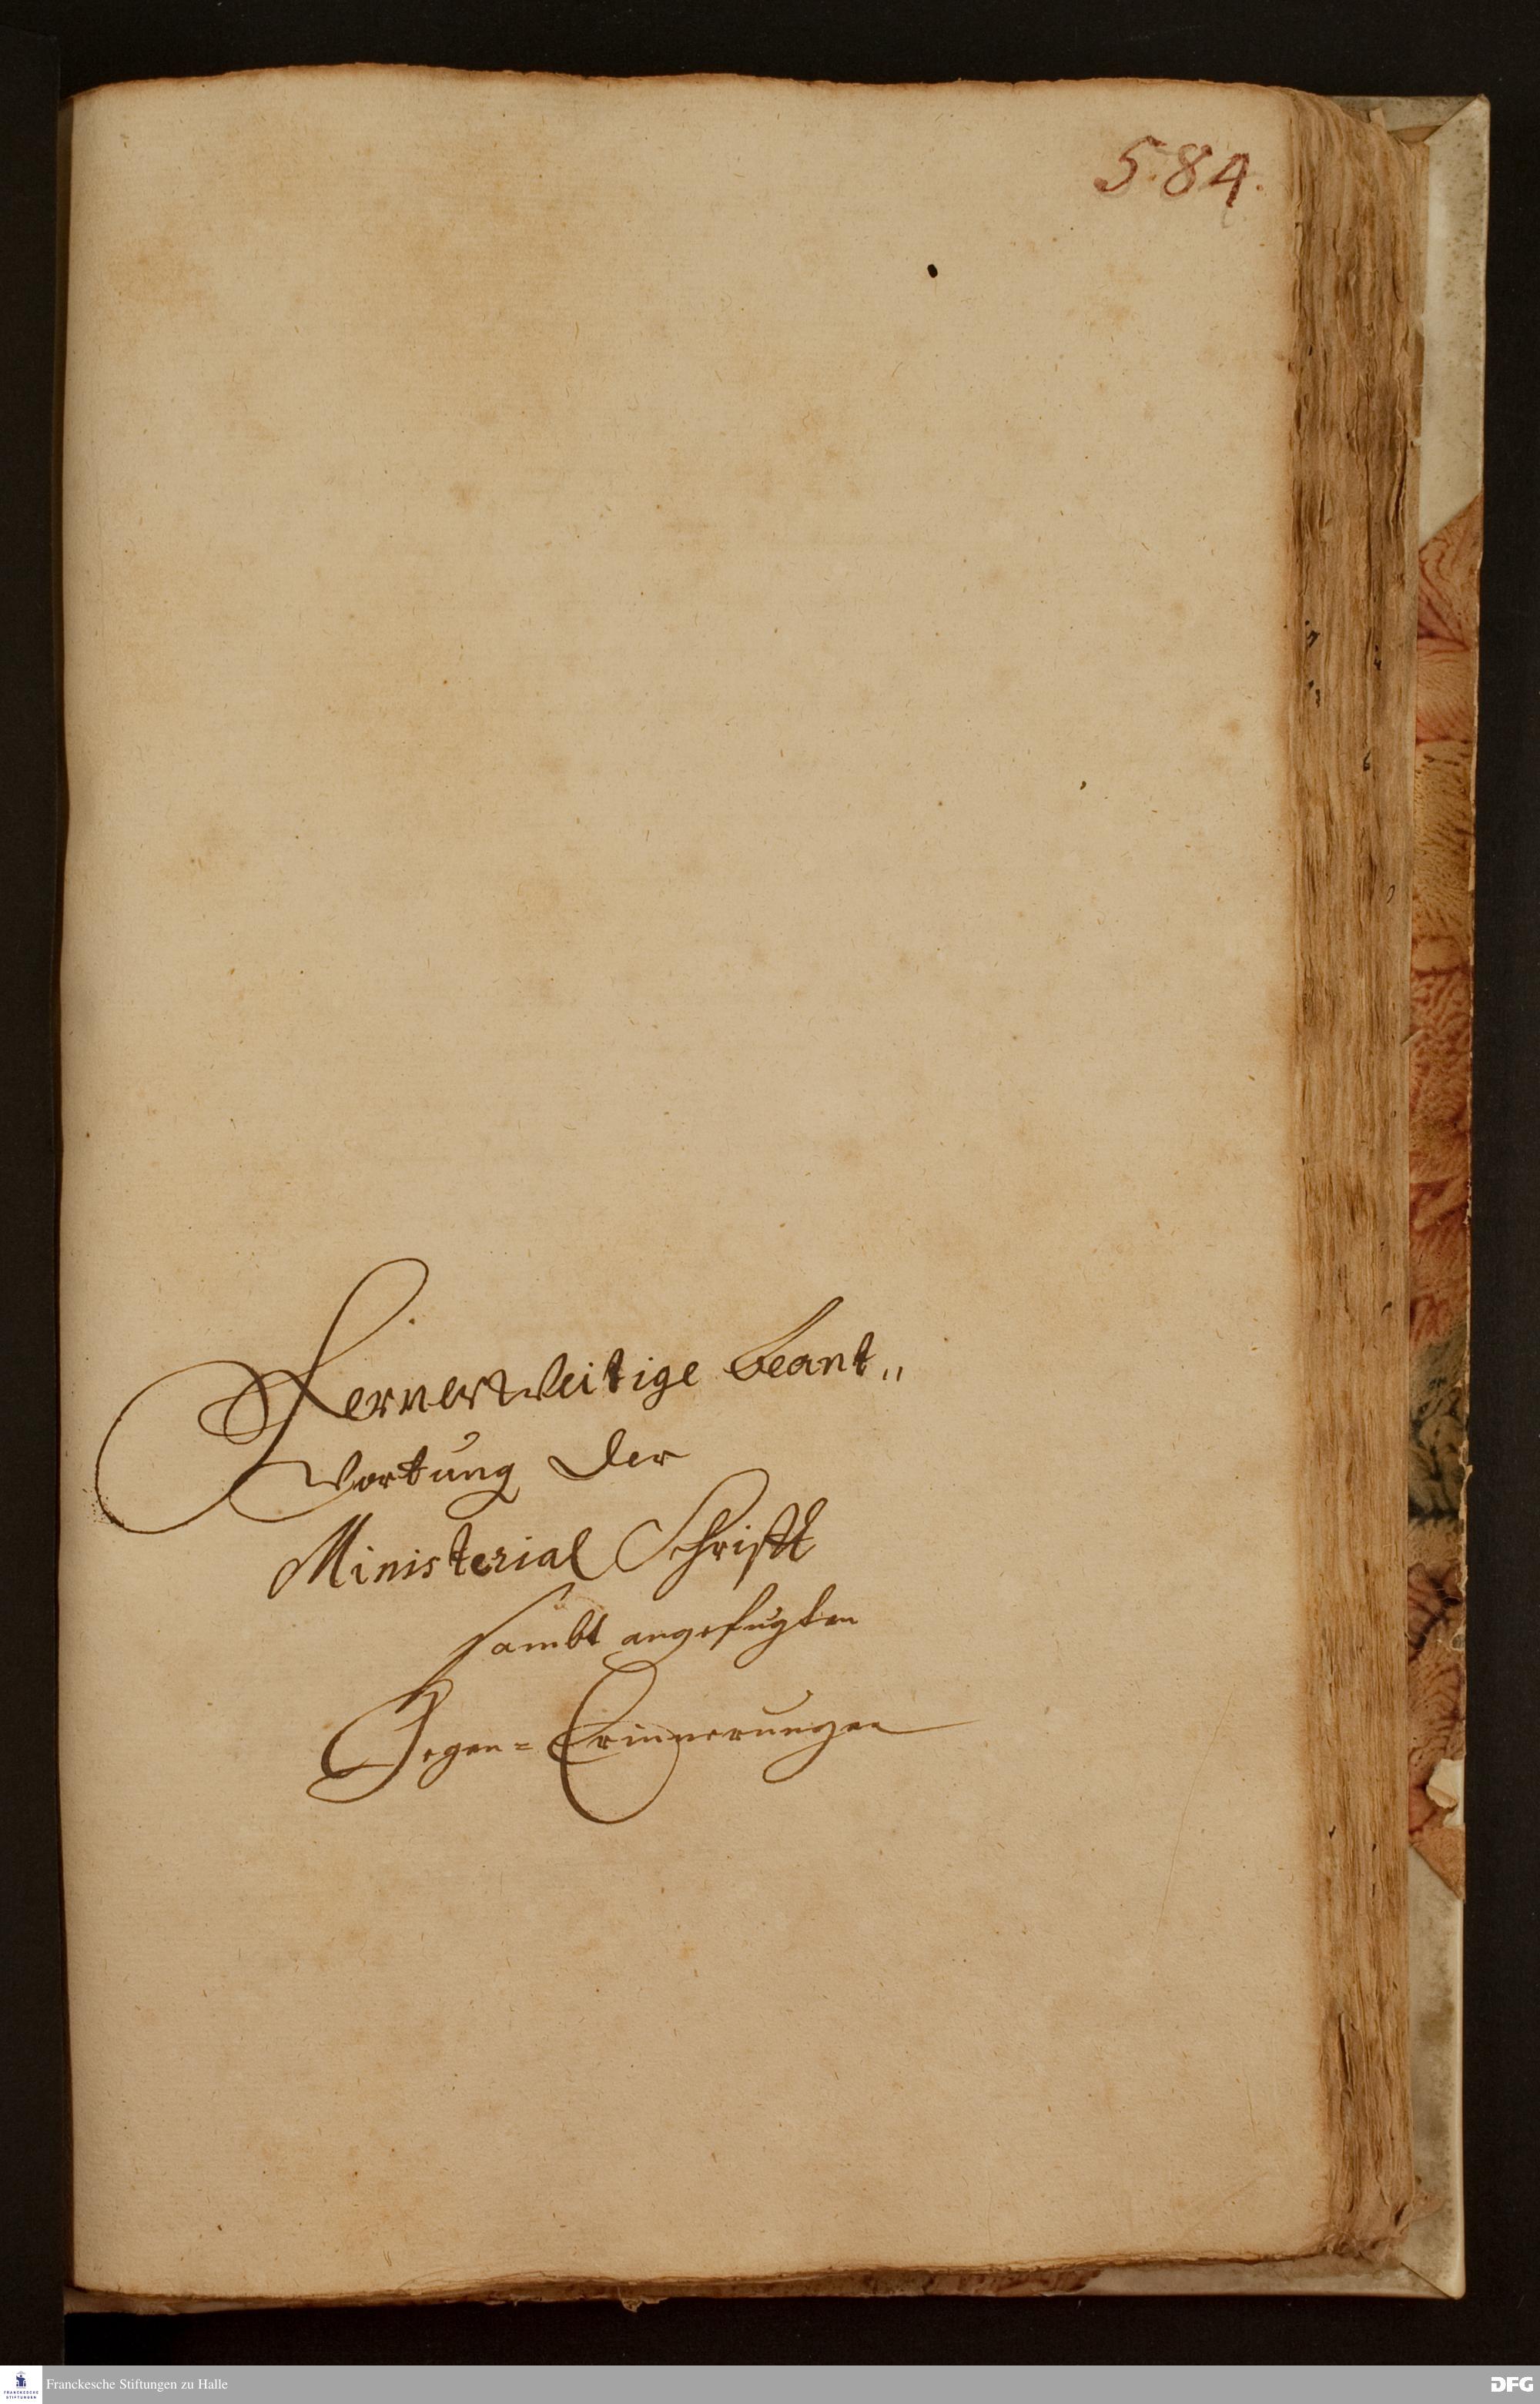 584.
Fernerweitige beant„
wortung der
Ministerial Schrifft
sambt angefugten
Gegen=Erinnerungen
Franckesche Stiftungen zu Halle
DFG